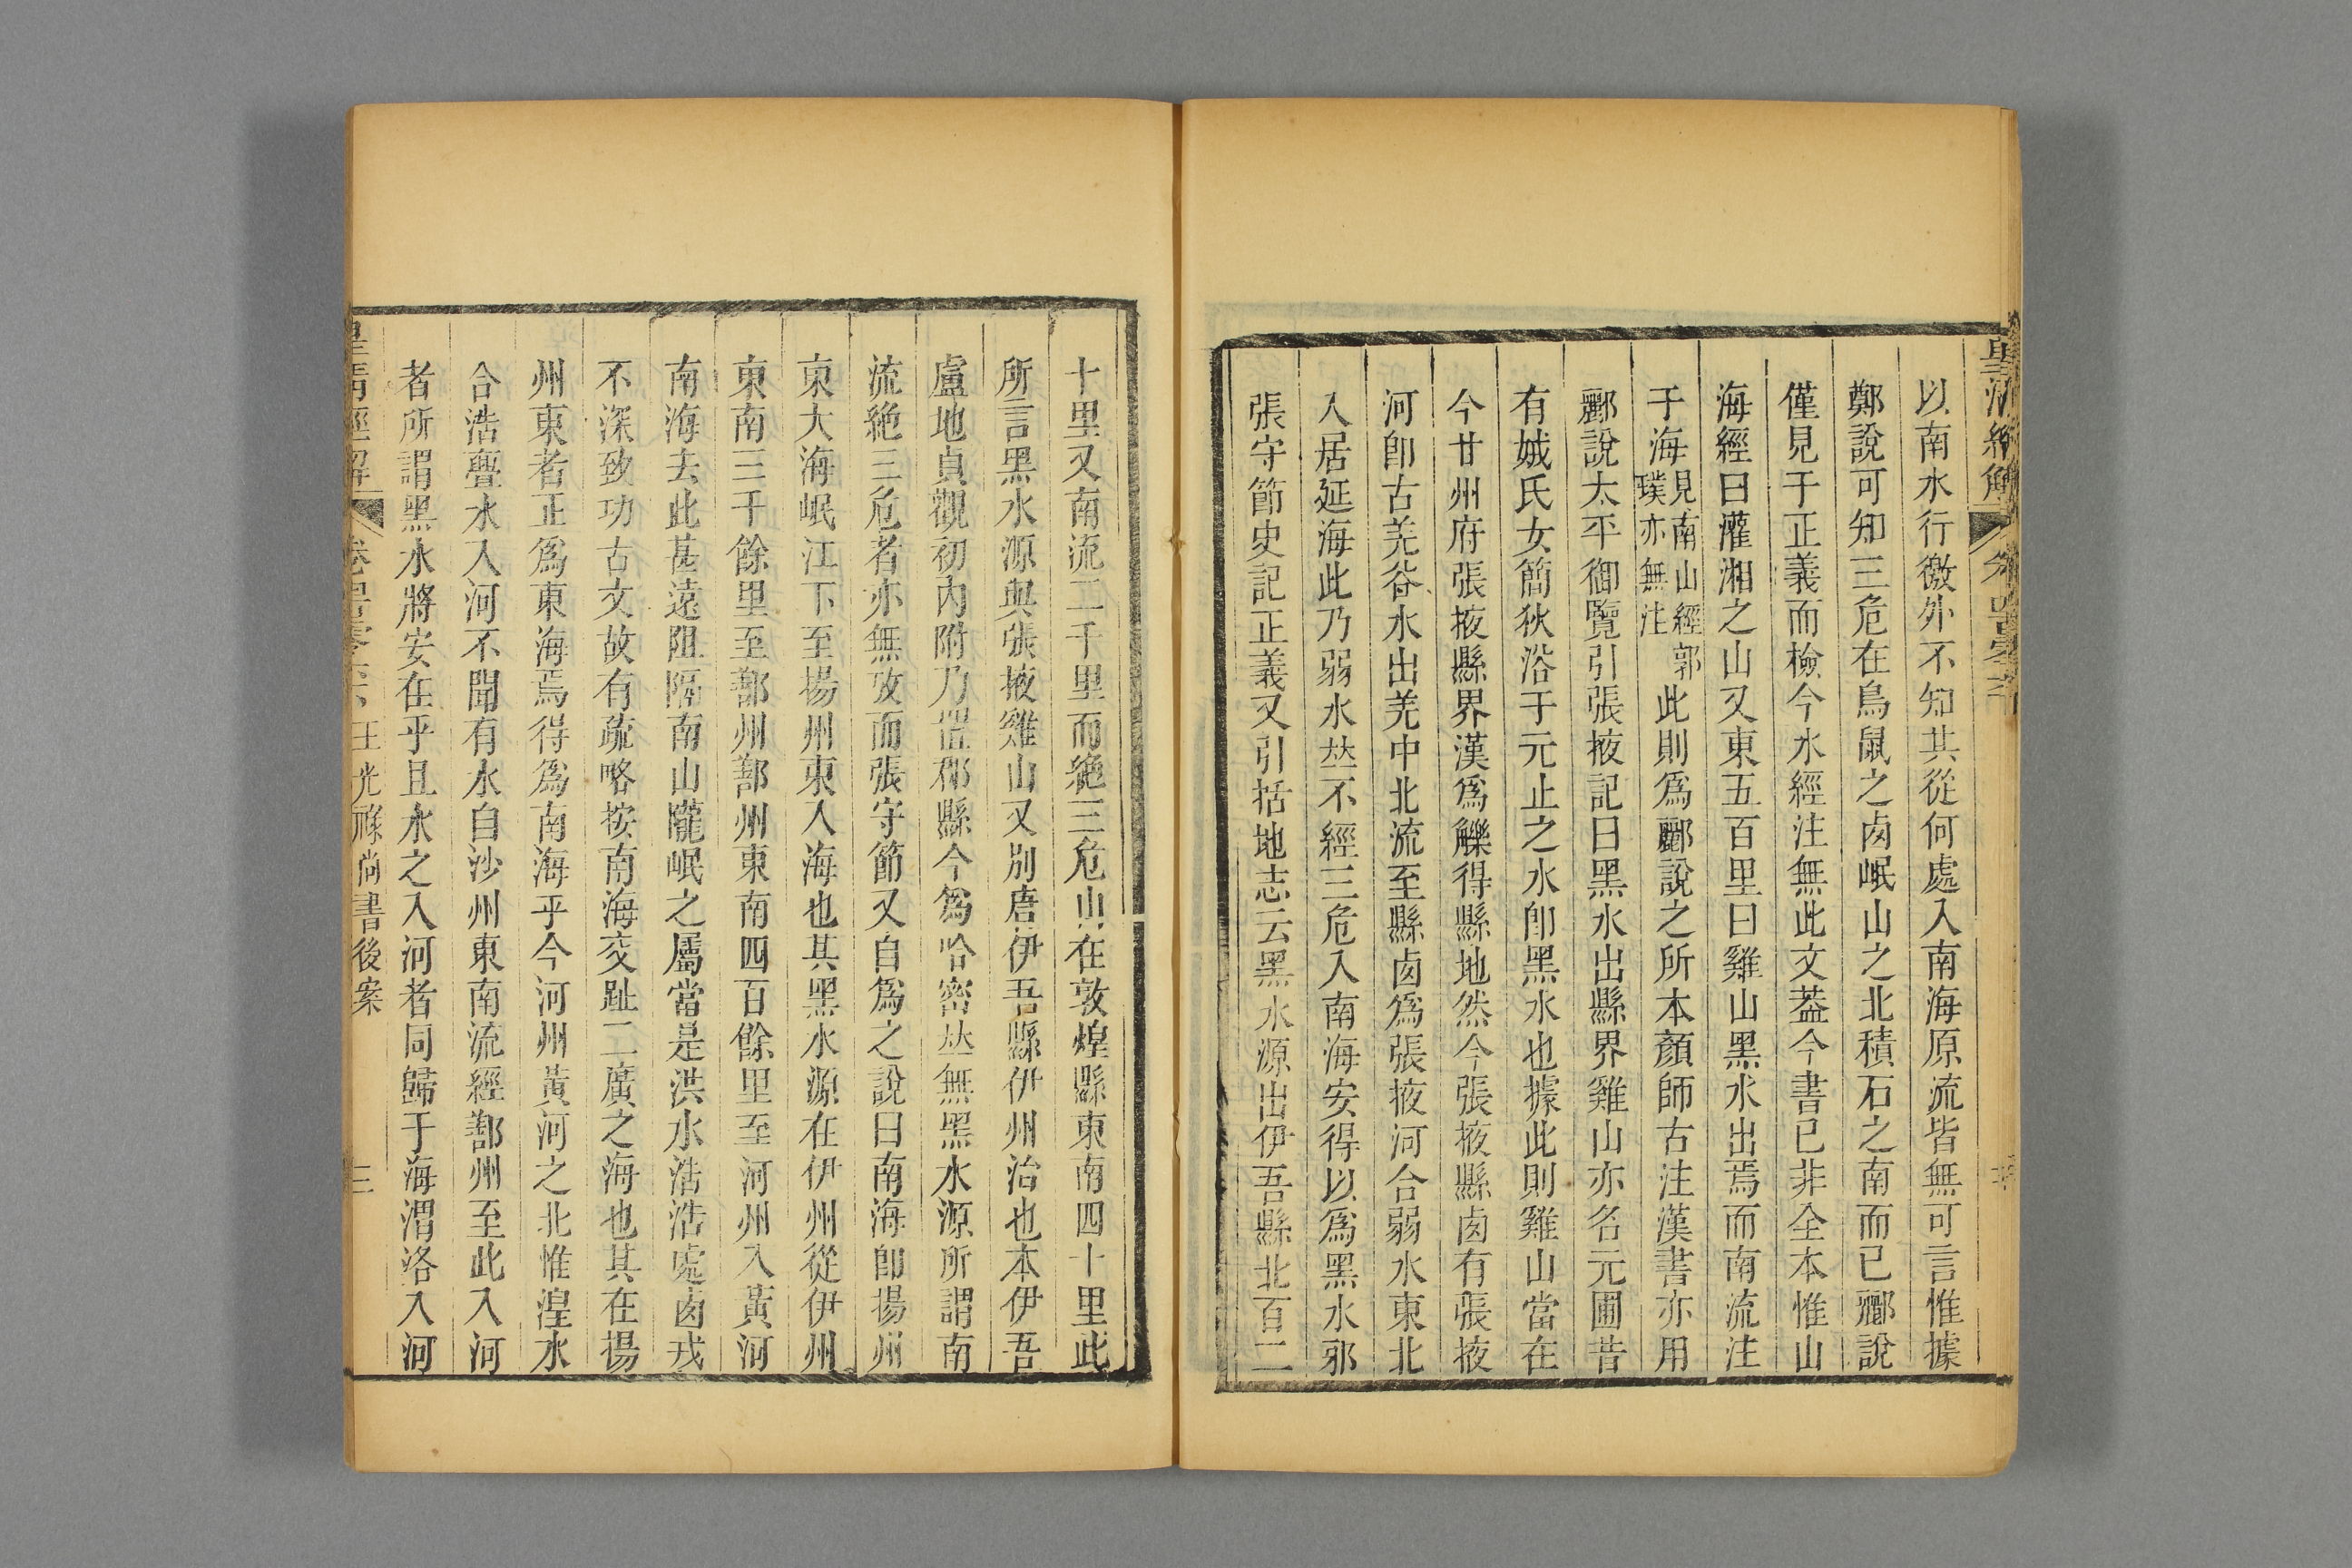 以南水行徼外不知其從何處入南海原流皆無可言惟據
鄭說可知三危在鳥鼠之卤岷山之北積石之南而已酈說
僅見于正義而檢今水經注無此文葢今書已非全本惟山
海經曰灌湘之山又東五百里曰雞山黑水出焉而南流注
于海見南山經郭璞亦無注此則爲酈說之所本顏師古注漢書亦用
酈說太平御覽引張掖記曰黑水出縣界雞山亦名元圃昔
有娀氏女簡狄浴于元止之水卽黑水也據此則雞山當在
今甘州府張掖縣界漢爲觻得縣地然今張掖縣卤有張掖
河卽古羌谷水出羌中北流至縣卤爲張掖河合弱水東北
入居延海此乃弱水𠀤不經三危入南海安得以爲黑水邪
張守節史記正義又引括地志云黑水源出伊吾縣北百二
十里又南流二千里而絶三危山在敦煌縣東南四十里此
所言黑水源與張掖雞山又別唐伊吾縣伊州治也本伊吾
盧地貞觀初內附乃置郡縣今爲哈密𠀤無黑水源所謂南
流絶三危者亦無攷而張守節又自爲之說曰南海卽揚州
東大海岷江下至揚州東入海也其黑水源在伊州從伊州
東南三千餘里至鄯州鄯州東南四百餘里至河州入黃河
南海去此甚遠阻隔南山隴岷之屬當是洪水浩浩處卤戎
不深致功古文故有疏略按南海交趾二廣之海也其在揚
州東者正爲東海焉得爲南海乎今河州黃河之北惟湟水
合浩亹水入河不聞有水自沙州東南流經鄯州至此入河
者所謂黑水將安在乎且水之入河者同歸于海渭洛入河
王光祿尚書後案